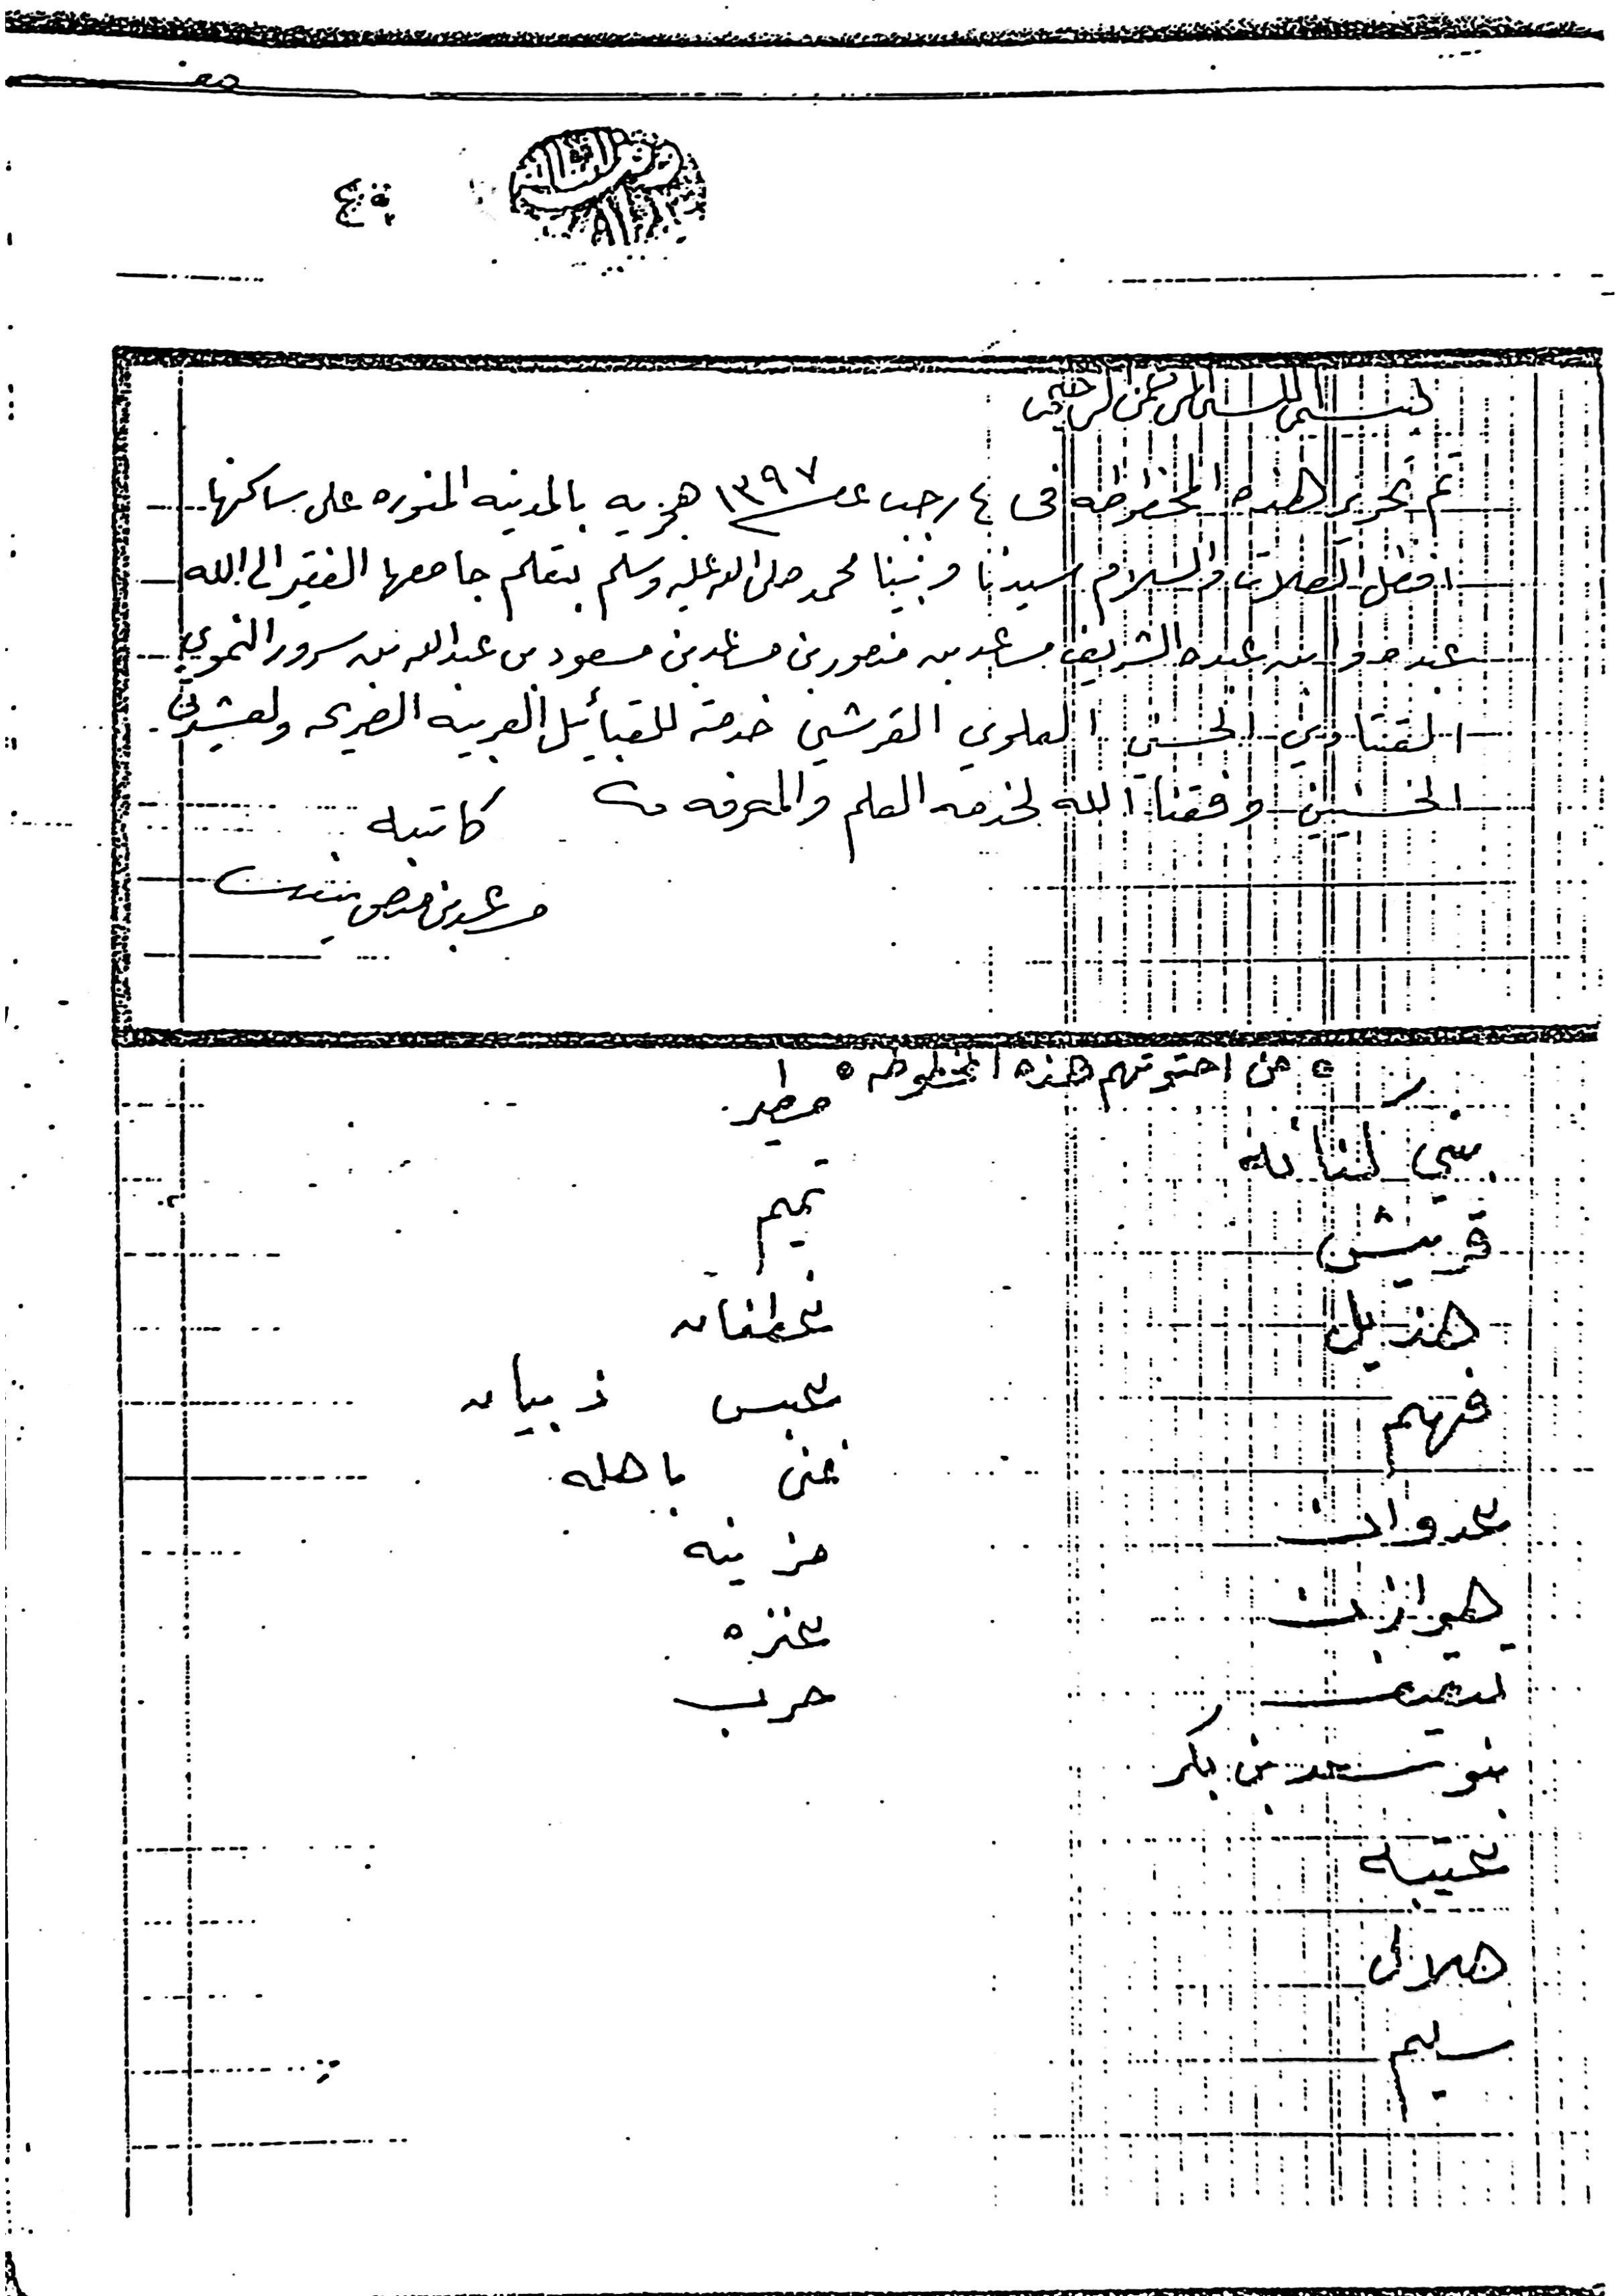 بسم الله الرحمن الرحيم
تم تحرير هذه المخطوطه في ٤ رجب عام ١٣٩٧ هجريه بالمدينه المنوره على ساكنها
افضل الصلات والسلام سيدنا ونبينا محمد صلى الله عليه وسلم بقلم جامعها الفقير الى الله
عبده وابن عبده الشريف مساعد بن منصور بن مساعد بن مسعود بن عبدالله بن سرور النموي
القتادي الحسني العلوي القرشي خدمة للقبائل العربيه الصريحه ولعشيرتي
الحسنيين وفقنا الله لخدمه العلم والمعرفه
كاتبه
من احتوتهم هذه المخطوطه
بني كنانه
مطير
قريش
تميم
هذيل
غطفان
فهم
عبس ذبيان
عدوان
غني باهله
هوازن
مزينه
ثقيف
عنزه
بنو سعد بن بكر
حرب
عتيبة
هلال
سليم